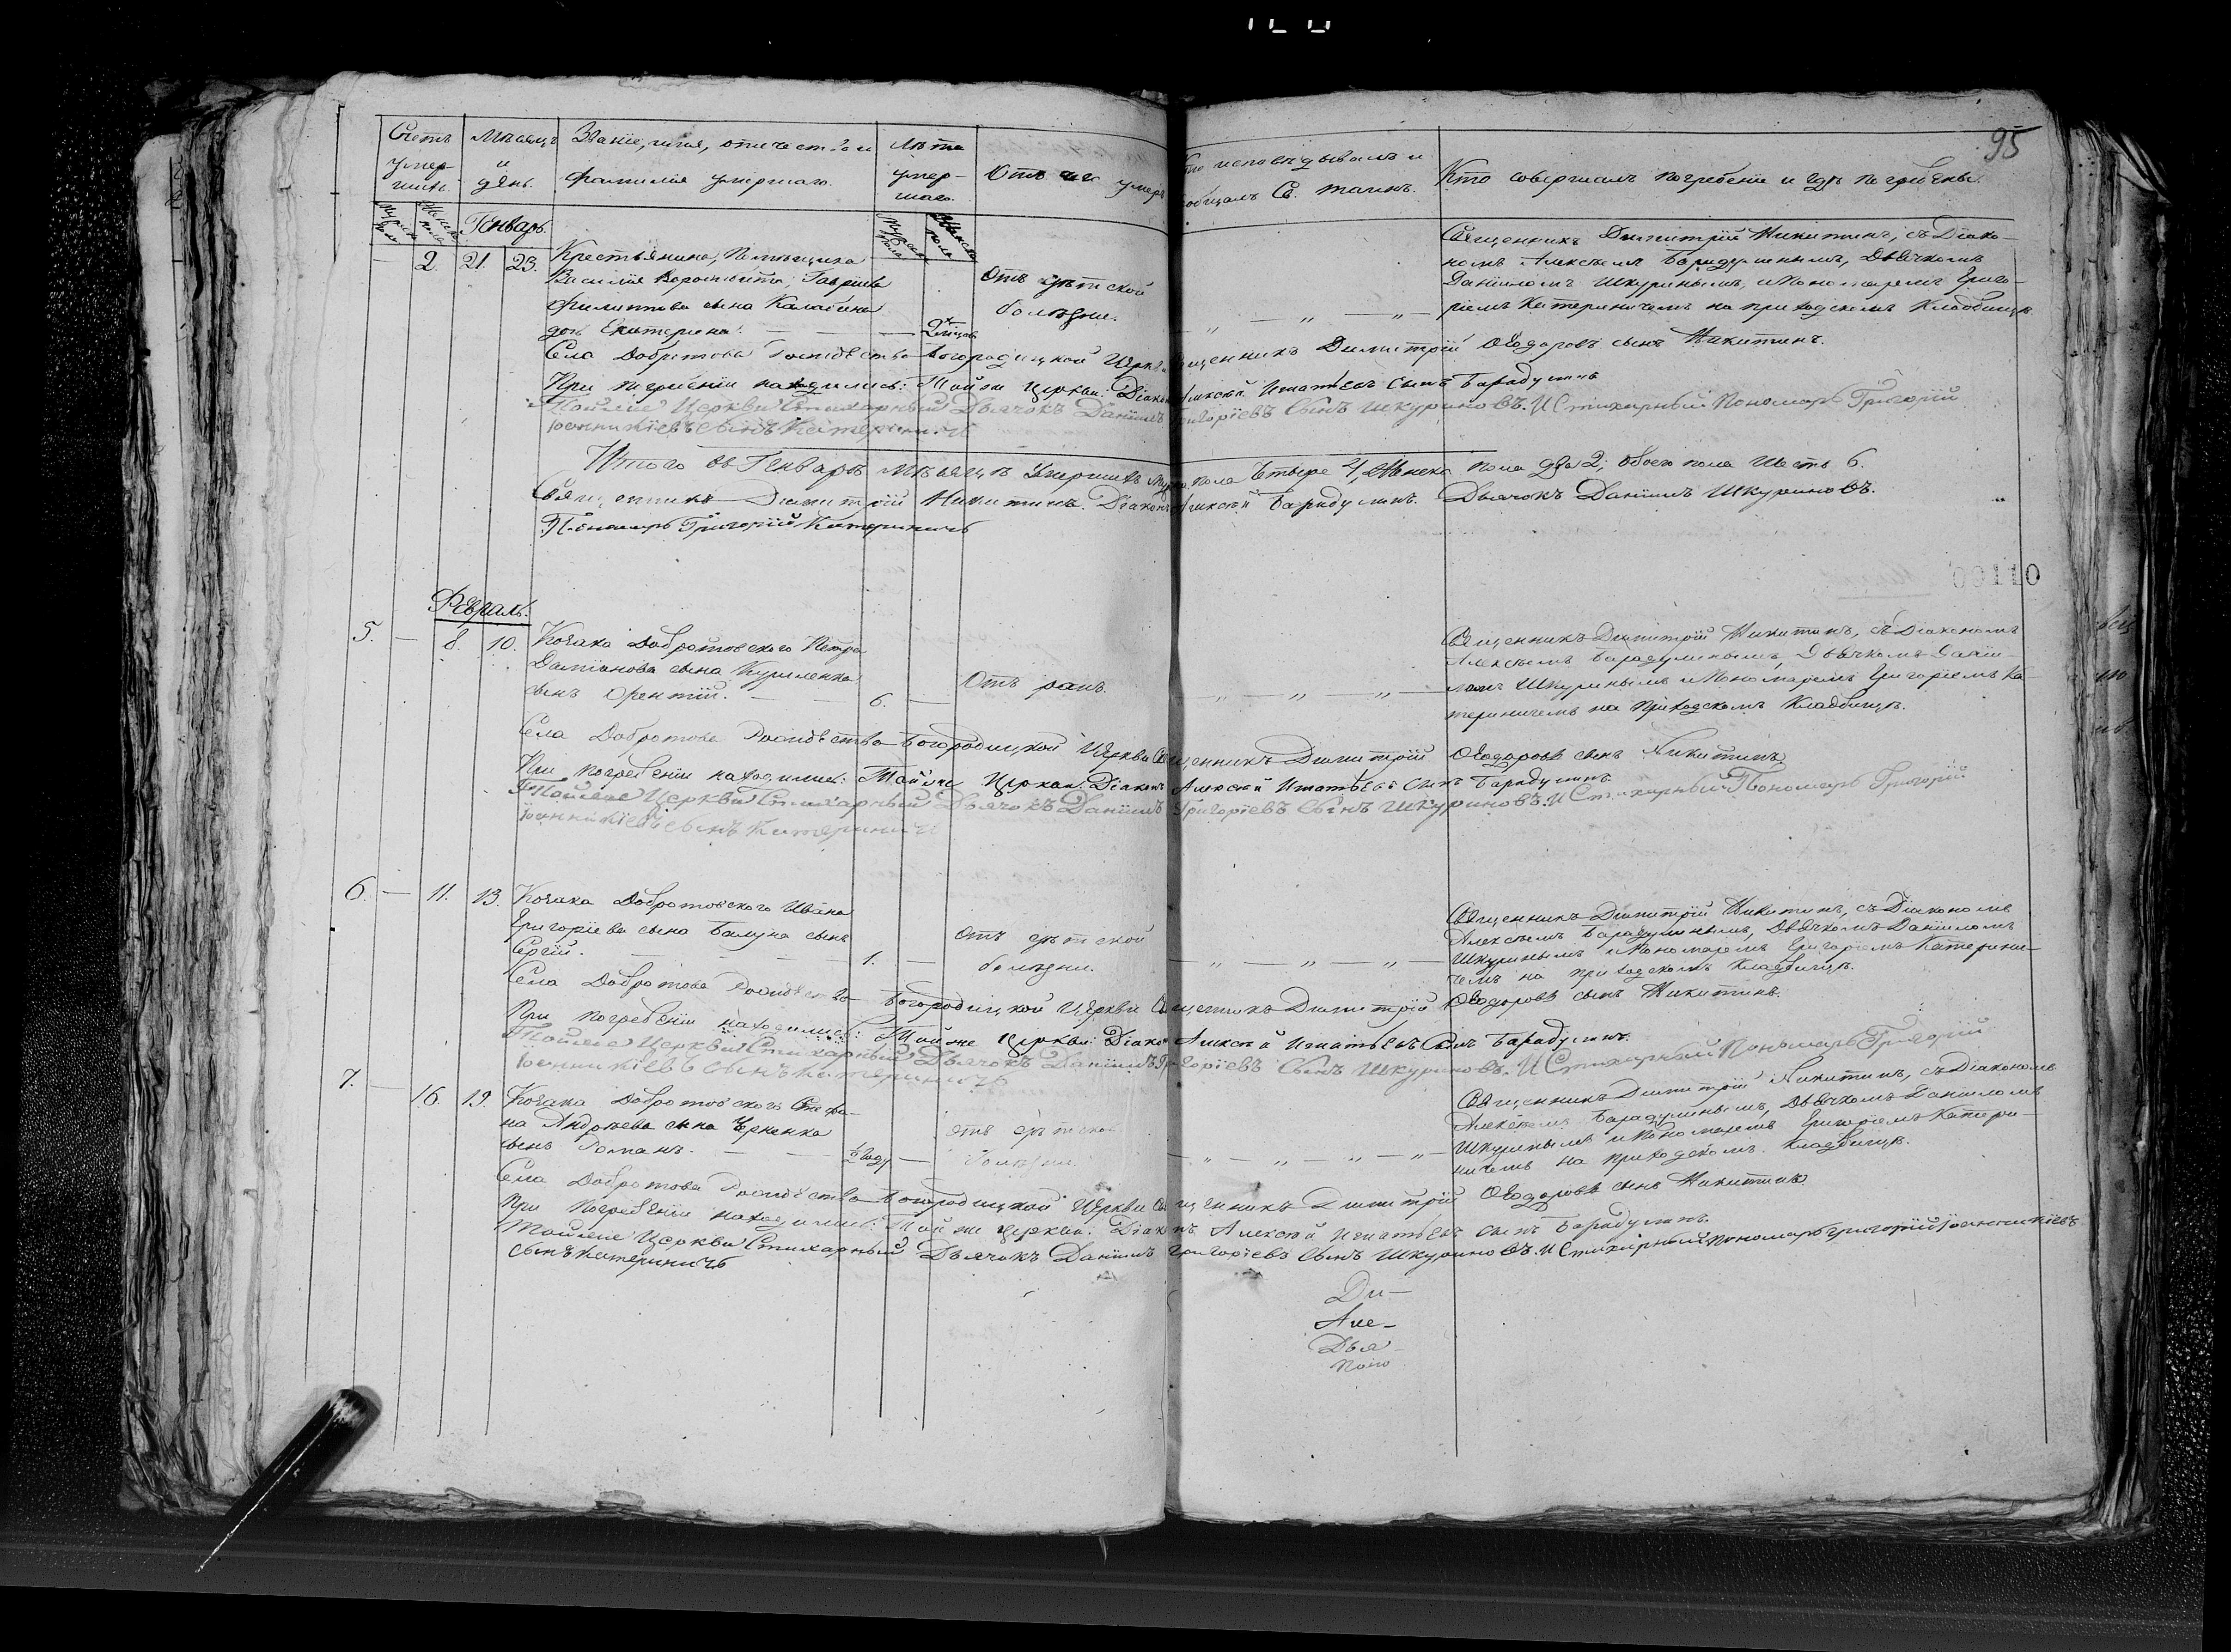 95
Счетъ умер-шихъ.
Мѣсяцъ и день.
Званіе, имя, отчество и фамилія умершаго.
Лѣта умер-шаго.
Отъ чего умеръ
Кто исповѣдывалъ и пріобщалъ Св. таинъ.
Кто совершалъ погребеніе и гдѣ погребены.
Мужеска пола
Женска пола
Генварь.
Мужеска пола
Женска пола
2. 21. 23.
Крестьянина, Помѣщика
Василія Гавріила
Филиппова сына
дочь Екатерина.
2 мѣсяц
Отъ дѣтской
болѣзни.
Священникъ Димитрій Никитинъ, съ Діако-
номъ Алексѣемъ Барадулинымъ, Дьячкомъ
Даніиломъ Шкуринымъ, и Пономаремъ Григо-
ріемъ Катериничемъ на приходскомъ Кладбищѣ.
Села Добротова Рождество-Богородицкой Церкви Священникъ Димитрій Ѳеодоровъ сынъ Никитинъ.
При погребеніи находились: Той же Церкви Діаконъ Алексѣй Игнатьевъ сынъ Барадулинъ
Тойже Церкви Стихарный Дьячокъ Даніилъ Григоріевъ Сынъ Шкуриновъ. И Стихарный Пономарь Григорій
Іоанникіевъ сынъ Катериничъ
Итого въ Генварѣ мѣсяцѣ Умершихъ муж. пола Четыре 4, Женска пола два 2, обоего пола Шесть 6.
Священникъ Димитрій Никитинъ. Діаконъ Алексѣй Барадулинъ. Дьячокъ Даніилъ Шкуриновъ.
Пономарь Григорій Катериничъ
00110
Февраль.
5. — 8. 10.
Козака Добротовского Петра
Даміанова сына Куриленка
сынъ Орентій. — 6.
Отъ ранъ.
Священникъ Димитрій Никитинъ, съ Діакономъ
Алексѣемъ Барадулинымъ, Дьячкомъ Даніи-
ломъ Шкуринымъ и Пономаремъ Григоріемъ Ка-
териничемъ на Приходскомъ Кладбищѣ.
Села Добротова Рождество-Богородицкой Церкви Священникъ Димитрій Ѳеодоровъ сынъ Никитинъ
При погребеніи находились: Той же Церкви Діаконъ Алексѣй Игнатьевъ сынъ Барадулинъ
Тойже Церкви Стихарный Дьячокъ Даніилъ Григоріевъ Сынъ Шкуриновъ. И Стихарный Пономарь Григорій
Іоанникіевъ сынъ Катериничъ
6. — 11. 13.
Козака Добротовского Ивана
Григоріева сына Балуна сынъ
Сергій. — 1. —
Отъ дѣтской
болѣзни.
Священникъ Димитрій Никитинъ, съ Діакономъ
Алексѣемъ Барадулинымъ, Дьячкомъ Даніиломъ
Шкуринымъ и Пономаремъ Григоріемъ Катерини-
чемъ на приходскомъ кладбищѣ.
Села Добротова Рождество-Богородицкой Церкви Священникъ Димитрій Ѳеодоровъ сынъ Никитинъ.
При погребеніи находились: Той же Церкви Діаконъ Алексѣй Игнатьевъ Сынъ Барадулинъ.
Тойже Церкви Стихарный Дьячокъ Даніилъ Григоріевъ Сынъ Шкуриновъ. И Стихарный Пономарь Григорій
Іоанникіевъ сынъ Катериничъ
7. — 16. 19.
Козака Добротовского Стефа-
на Андреева сына
сынъ Романъ. — ½ году —
Отъ дѣтской
болѣзни.
Священникъ Димитрій Никитинъ, съ Діакономъ
Алексѣемъ Барадулинымъ, Дьячкомъ Даніиломъ
Шкуринымъ и Пономаремъ Григоріемъ Катери-
ничемъ на приходскомъ Кладбищѣ.
Села Добротова Рождество-Богородицкой Церкви Священникъ Димитрій Ѳеодоровъ сынъ Никитинъ
При погребеніи находились: Той же Церкви Діаконъ Алексѣй Игнатьевъ сынъ Барадулинъ.
Тойже Церкви Стихарный Дьячокъ Даніилъ Григоріевъ Сынъ Шкуриновъ. И Стихарный Пономарь Григорій Іоанникіевъ
сынъ Катериничъ
Ди-
Але-
Дья-
Поно